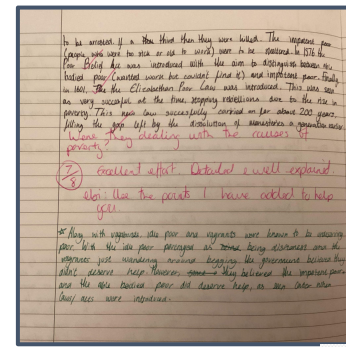 to be arrested if a third then they were killed. The impotent poor
(people who were too sick or old to work) were to be In 1576 the
Poor Relief Act was introduced with the aim to distinguish between able
bodied poor (wanted work but couldnt find it) and impotent poor. Finally
in 1601, the Elizabethan Poor Law was introduced. This was seen
as very succesful at the time, stopping rebellions due to the rise in
poverty. This new law succesfully carried on for about 200 years,
filling the gap left by the dissolution of monasteries a generation earlier.
Were they dealing with the causes of
poverty?
7/8 Excellent effort. Detailed & well explained.
ebi: Use the points I have added to help
you.
* Along with vagabonds, idle poor and vagrants were known to be undeserving
poor. With the idle poor percieved as being dishonest and the
vagrants just wandering around begging, the government believed they
didn't deserve help. However, they believed the impotent poor
and the able bodied poor did deserve help, as seen later when
laws/acts were introduced.